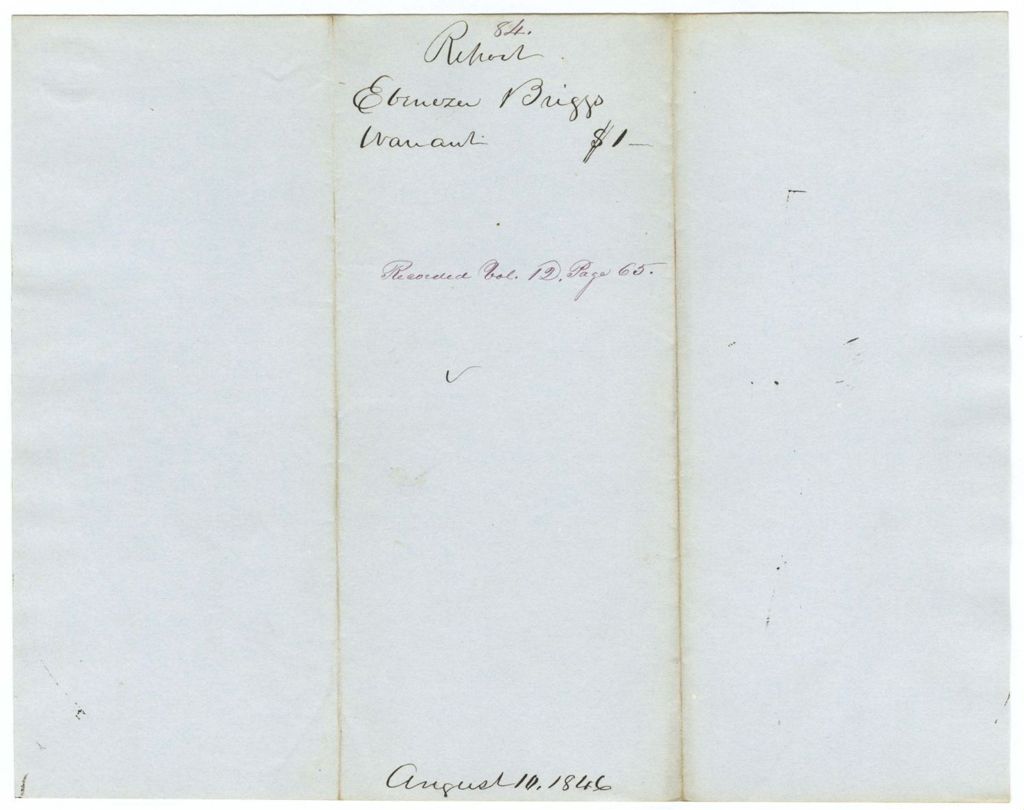 84.
Report
Ebenezer Briggs
Warrant $1—
Recorded Vol. 12. Page 65.
August 10. 1846